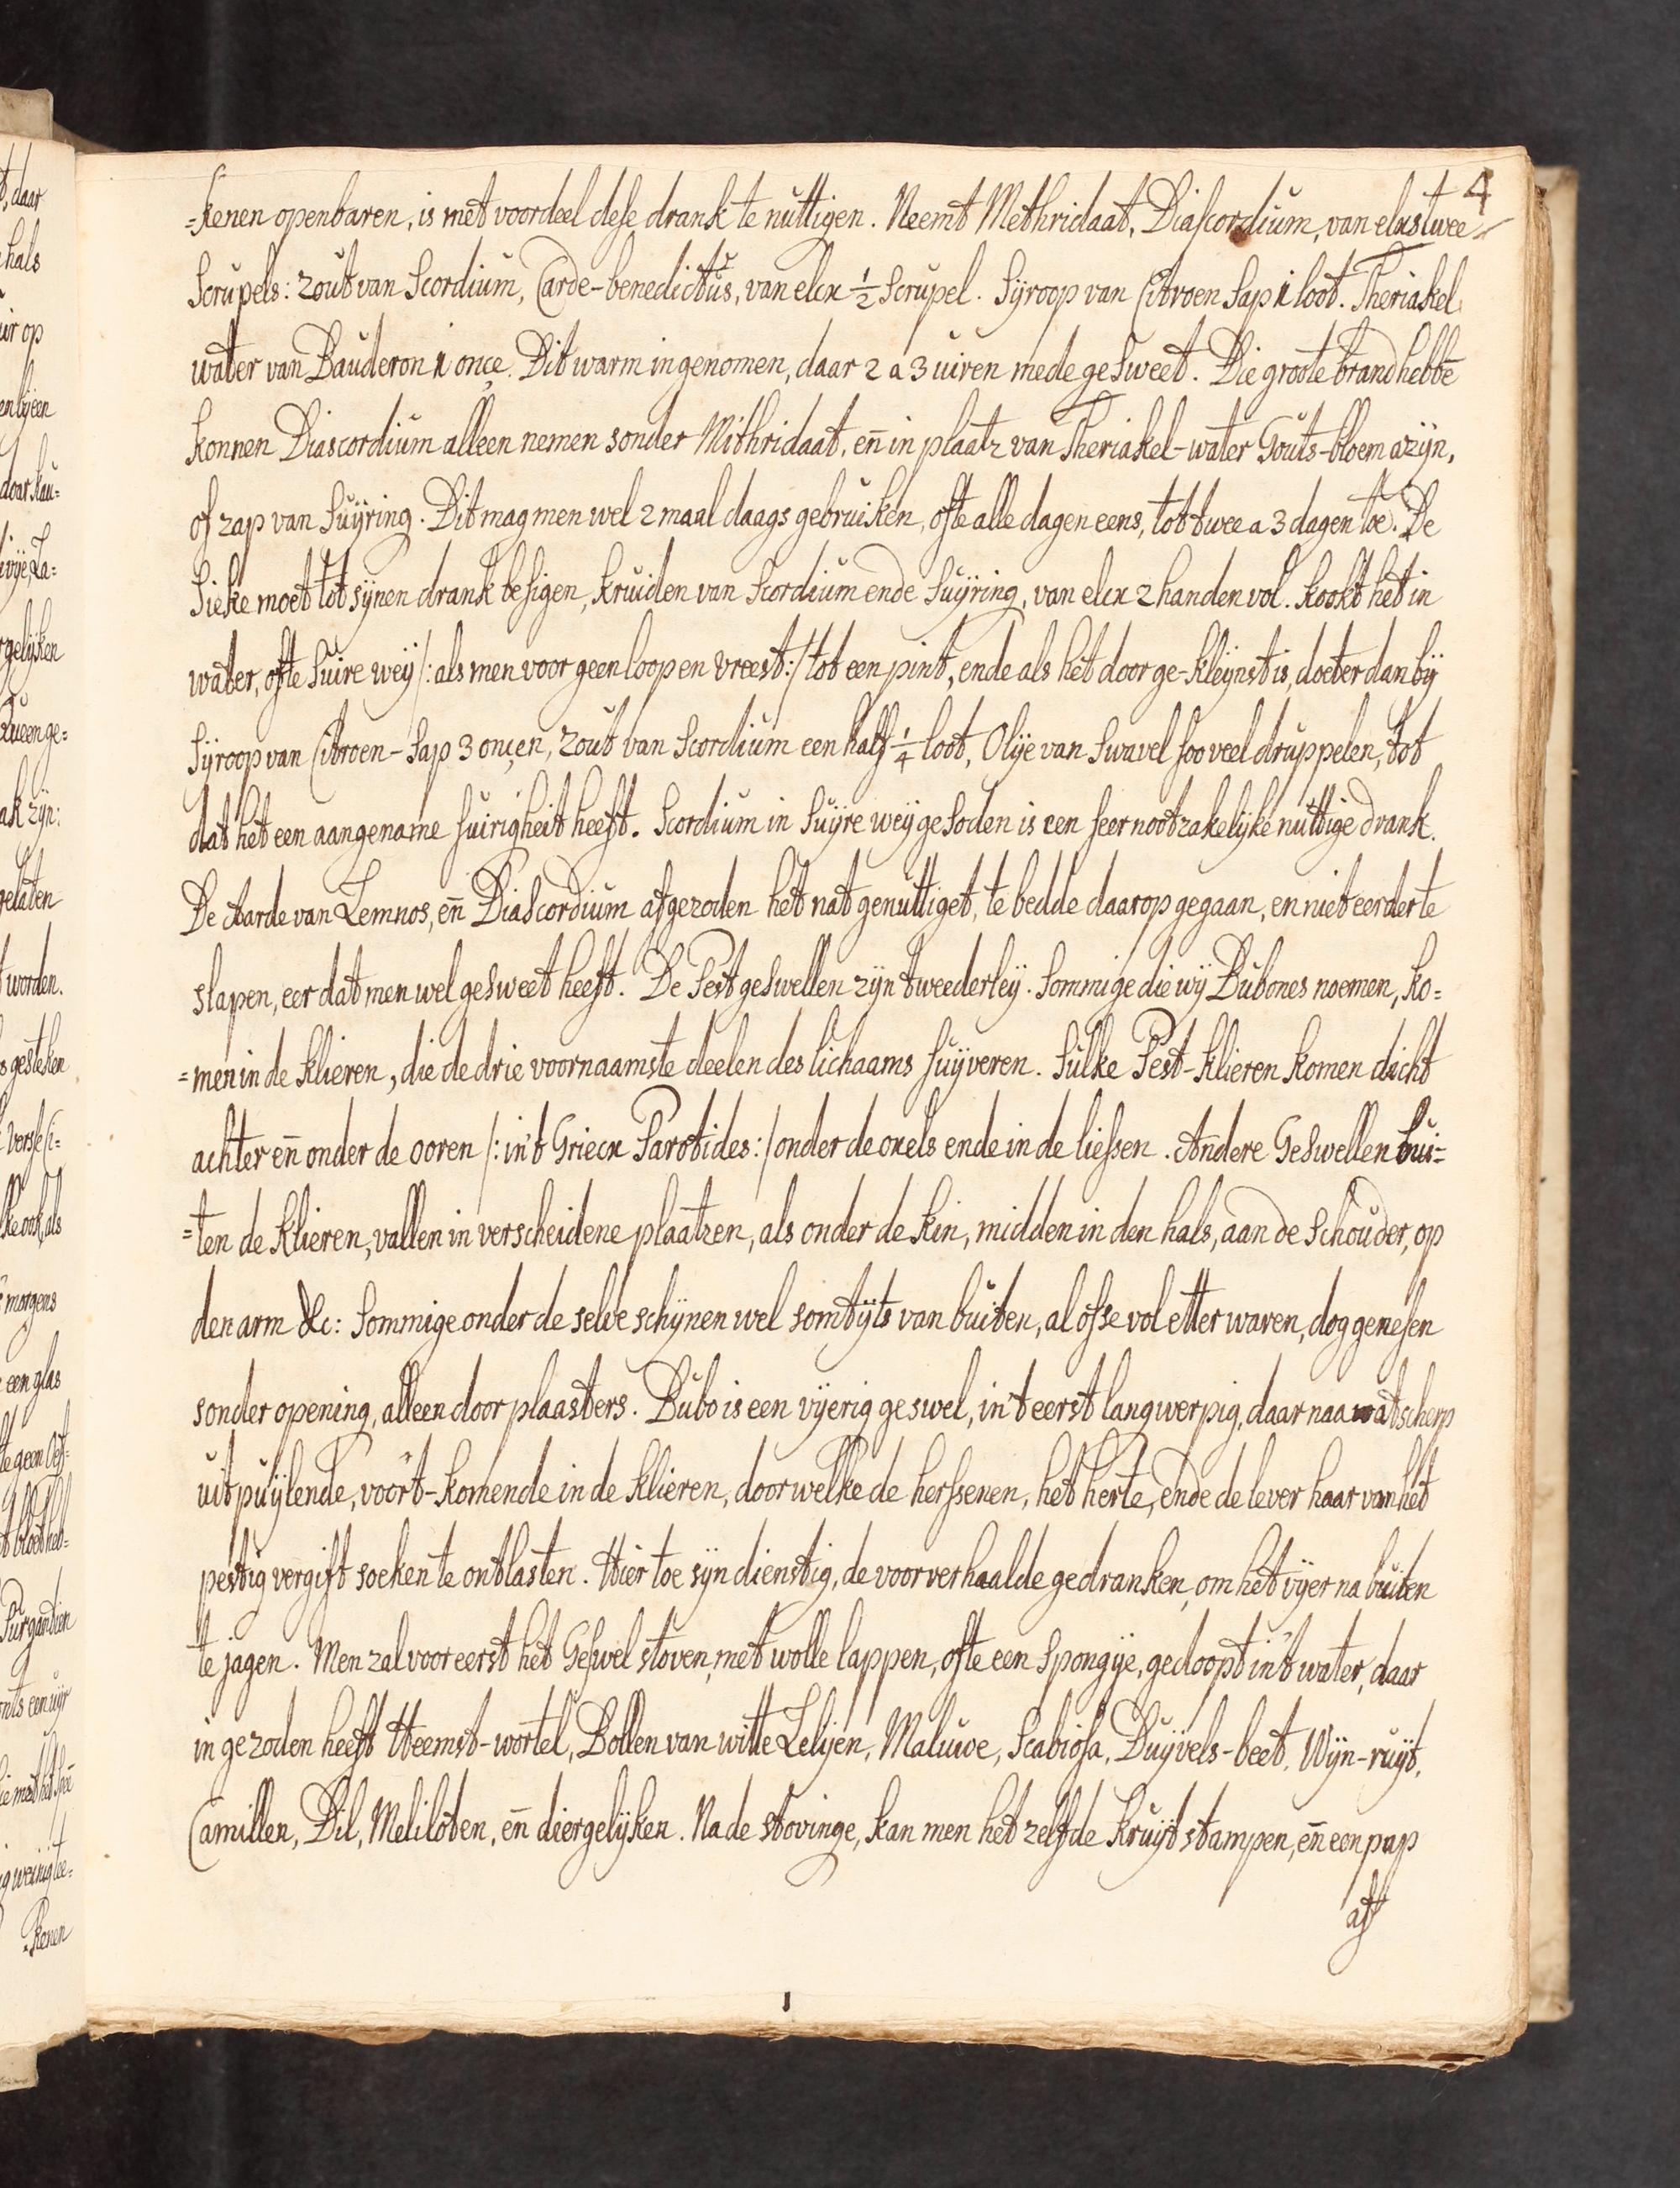 4
=kenen openbaren, is met voordeel dese drank te nuttigen. Neemt Methridaat, Diascordium, van elxs twee
Scrupels: zout van Scordium, Carde-benedictus, van elcx ½ Scrupel. Syroop van Citroen sap 1 loot. Theriakel
water van Bauderon 1 once. Dit warm ingenomen, daar 2 a 3 uiren mede gesweet. Die groote brand hebbē
konnen Diascordium alleen nemen sonder Mithridaat, en̄ in plaatz van Theriakel-water Gouts-bloem azijn,
of zap van Suÿring. Dit mag men wel 2 maal daags gebruiken, ofte alle dagen eens, tot twee a 3 dagen toe. De
Sieke moet tot sijnen drank besigen, kruiden van Scordium ende Suÿring, van elcx 2 handen vol. Kookt het in
water, ofte Suire weÿ /: als men voor geen loopen vreest:/ tot een pint, ende als het door ge-kleÿnst is, doeter dan bÿ
Sÿroop van Citroen-Sap 3 oncen, zout van Scordium een half ¼ loot, Olÿe van Swavel soo veel druppelen, tot
dat het een aangename suirigheit heeft. Scordium in Suÿre weÿ gesoden is een seer nootzakelÿke nuttige drank.
De Aarde van Lemnos, en̄ Diascordium afgezoden het nat genuttiget, te bedde daarop gegaan, en niet eerder te
slapen, eer dat men wel gesweet heeft. De Pest geswellen zÿn tweederleÿ. Sommige die wÿ Bubones noemen, ko=
=men in de klieren, die de drie voornaamste deelen des lichaams suÿveren. Sulke Pest-klieren komen dicht
achter en̄ onder de ooren /: in't Griecx Parotides:/ onder de oxels ende in de liessen. Andere Geswellen bui=
=ten de klieren, vallen in verscheidene plaatzen, als onder de kin, midden in den hals, aan de Schouder, op
den arm &c: Sommige onder de selve schÿnen wel somtÿts van buiten, al ofse vol etter waren, dog genesen
sonder opening, alleen door plaasters. Bubo is een vÿerig geswel, in't eerst langwerpig, daar naa wat scherp
uitpuÿlende, voort-komende in de klieren, door welke de herssenen, het herte, ende de lever haar van het
pestig vergift soeken te ontlasten. Hier toe sÿn dienstig, de voorverhaalde gedranken, om het vÿer na buiten
te jagen. Men zal voor eerst het Geswel stoven, met wolle lappen, ofte een Spongÿe, gedoopt in't water, daar
in gezoden heeft Heemst-wortel, Bollen van witte Lelÿen, Maluwe, Scabiosa, Duÿvels-beet, Wÿn-ruÿt,
Camillen, Dil, Meliloten, en̄ diergelÿken. Na de stovinge, kan men het zelfde kruÿt stampen, en̄ een pap
af